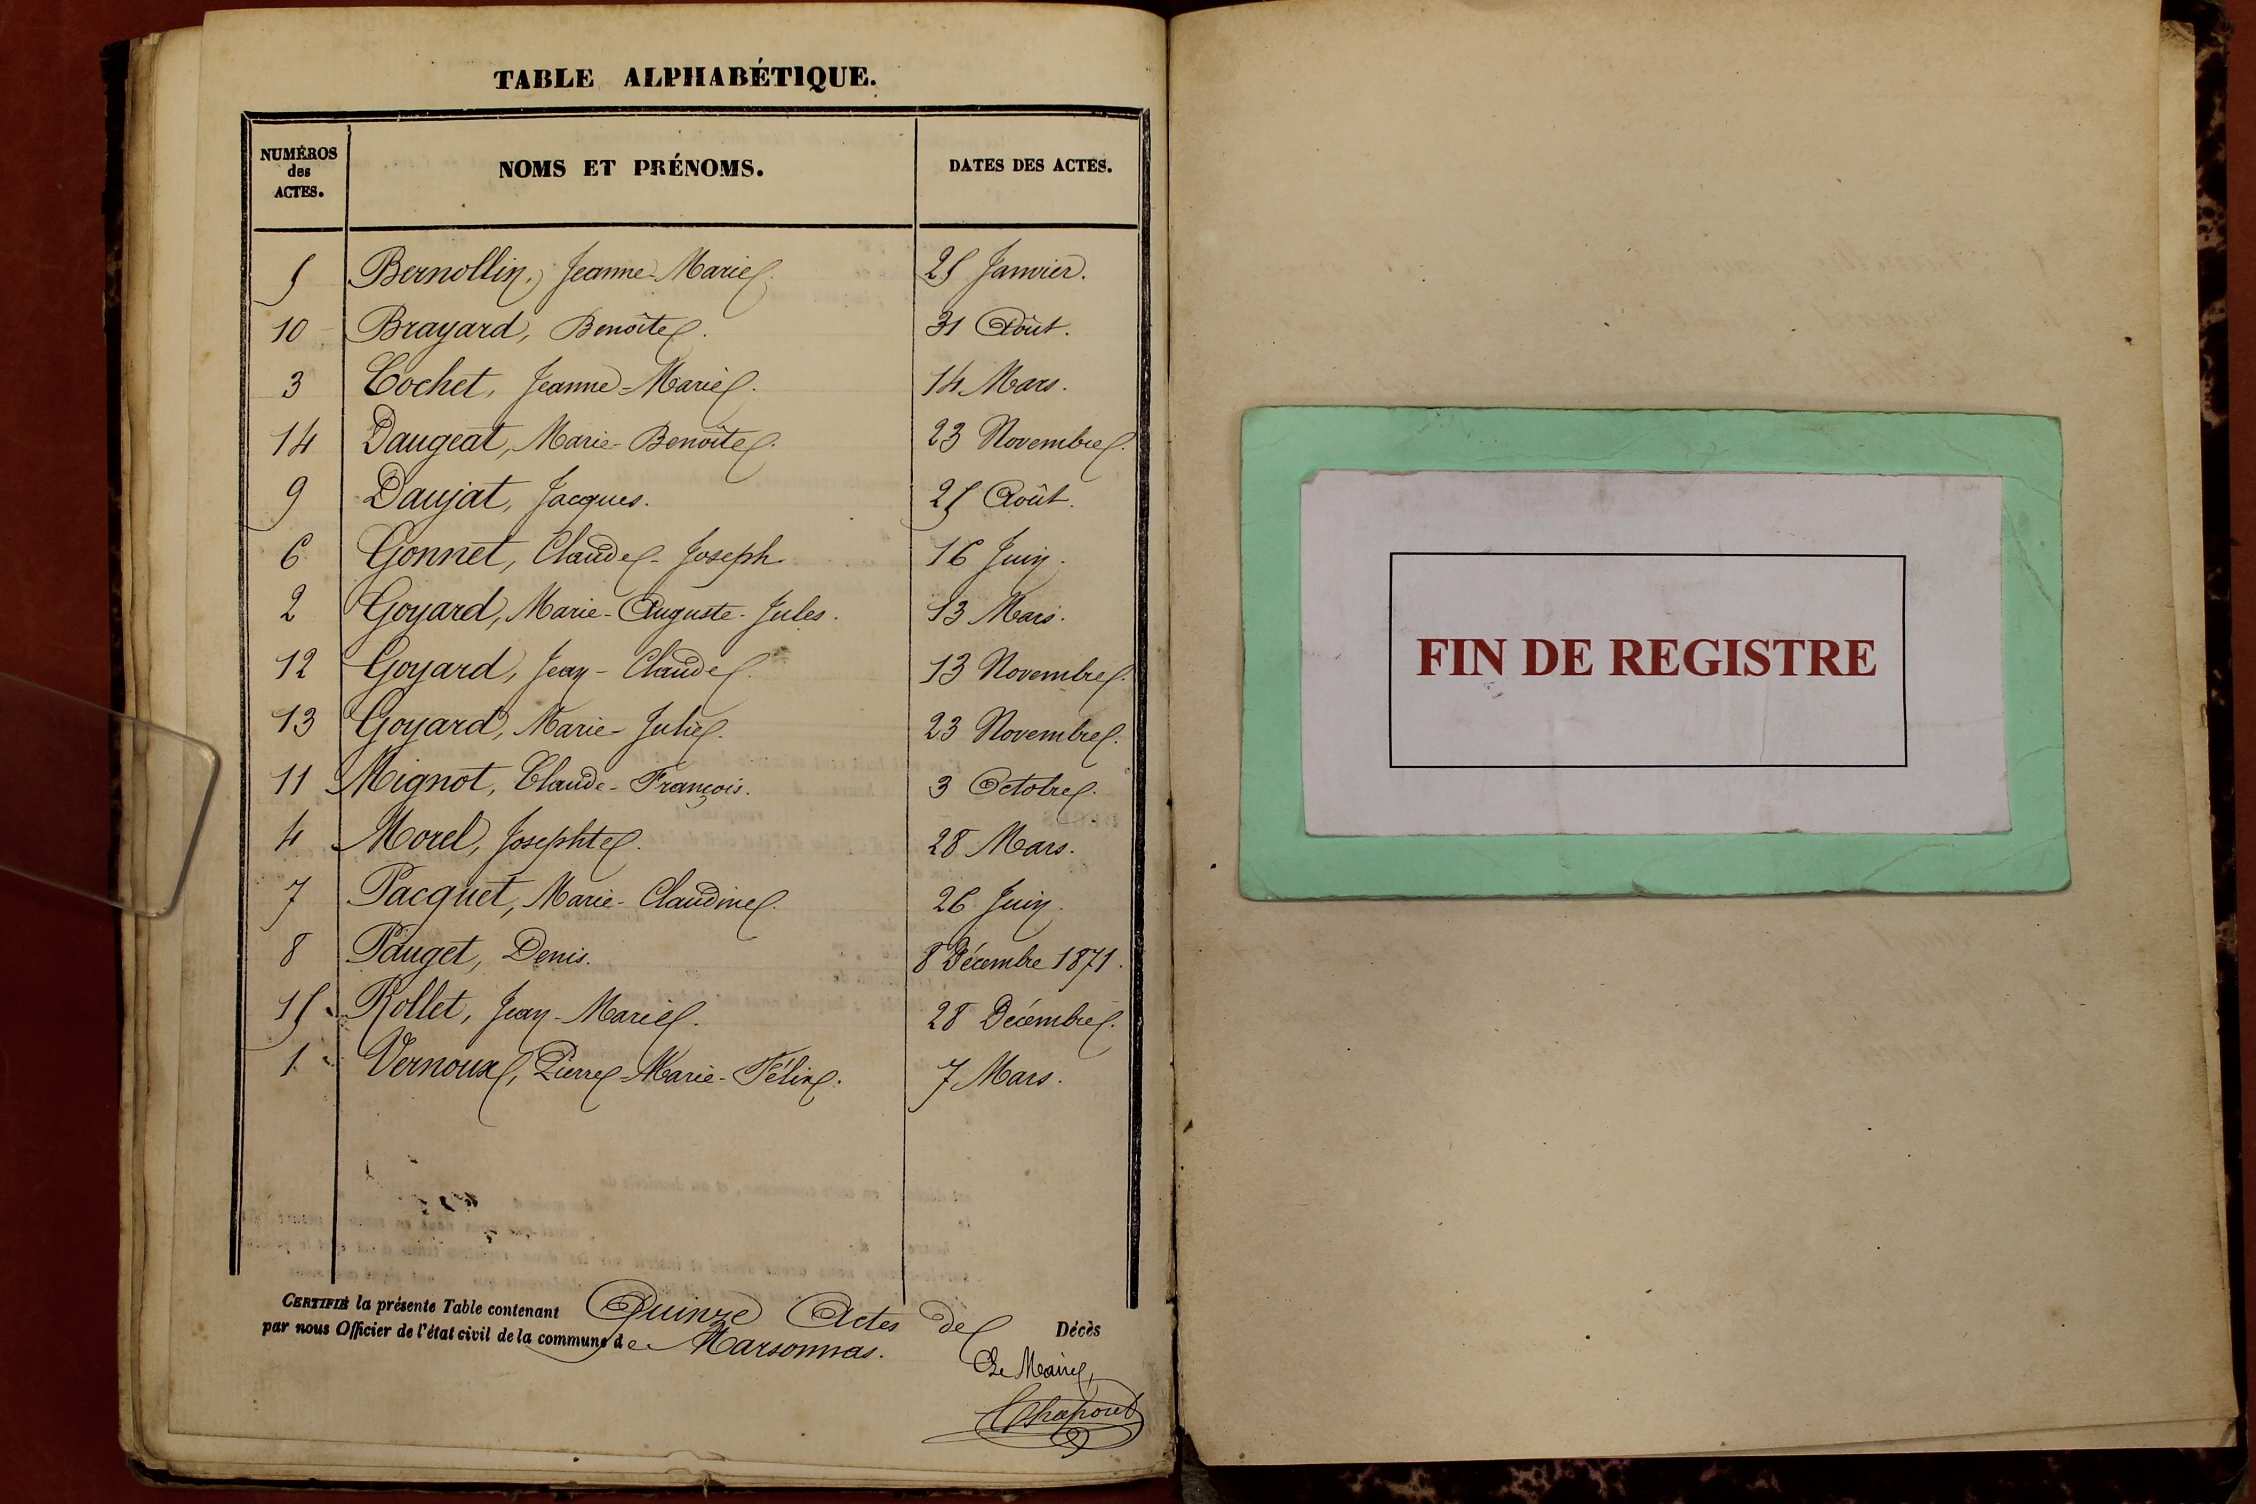 TABLE ALPHABÉTIQUE.
NUMÉROS des ACTES. NOMS ET PRÉNOMS. DATES DES ACTES.
5 Bernollin, Jeanne-Marie. 25 Janvier.
10 Brayard, Benoîte. 31 Août.
3 Cochet, Jeanne-Marie. 14 Mars.
14 Daugeat, Marie-Benoîte. 23 Novembre.
9 Daujat, Jacques. 25 Août.
6 Gonnet, Claude-Joseph 16 Juin.
2 Goyard, Marie-Auguste-Jules. 13 Mars.
12 Goyard, Jean-Claude. 13 Novembre.
13 Goyard, Marie-Julie. 23 Novembre.
11 Mignot, Claude-François. 3 Octobre.
4 Morel, Josephte. 28 Mars.
7 Pacquet, Marie-Claudine. 26 Juin.
8 Pauget, Denis. 8 Décembre 1871.
15 Rollet, Jean-Marie. 28 Décembre.
1 Vernoux, Pierre-Marie-Félix. 7 Mars.
CERTIFIÉ la présente Table contenant Quinze Actes de Décès
par nous Officier de l'état civil de la commune de Marsonnas.
Le Maire,
FIN DE REGISTRE